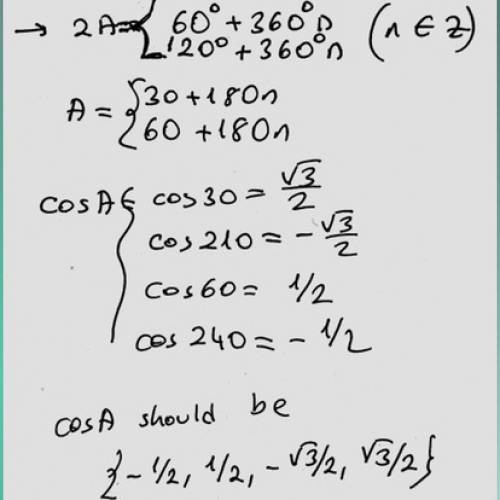 → 2A = { 60° + 360°n (n ∈ Z)
120° + 360°n
A = { 30 + 180n
60 + 180n
cosA ∈ { cos30 = √3/2
cos210 = -√3/2
cos60 = 1/2
cos 240 = - 1/2
cosA should be
{-1/2, 1/2, -√3/2, √3/2}